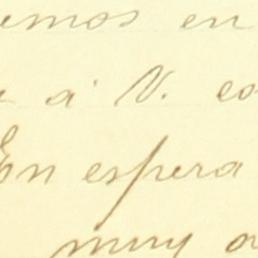 emos en
a á V. co
En espera
muy a